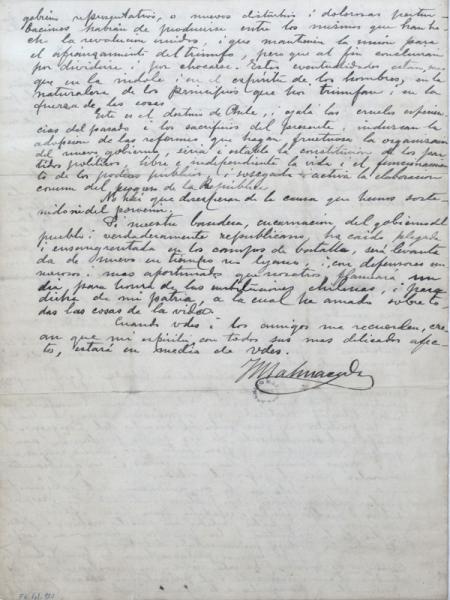 gobierno representativo, o nuevos disturbios i dolorosas pertur-
baciones habrán de producirse entre los mismos que han he-
cho la revolución unidos, i que mantienen la unión para
el afianzamiento del triunfo, pero que al fin concluirán
por dividirse i por chocarse. Estas eventualidades están, mas
que en la índole i en el espíritu de los hombres, en la
naturaleza de los principios que hoi triunfan i en la
fuerza de las cosas.
Este es el destino de Chile, i ojalá las crueles esperien-
cias del pasado i los sacrificios del presente, induzcan la
adopcion de las reformas que hagan fructuosa la organizacion
del nuevo gobierno, séria i estable la constitucion de los par-
tidos políticos, libre e independiente la vida i el funcionamien-
to de los poderes públicos, i sosegada i activa la elaboracion
comun del progreso de la República.
No hai que desesperar de la causa que hemos soste-
nido ni del porvenir.
Si nuestra bandera, encarnacion del gobierno del
pueblo verdaderamente republicano, ha caido plegada
i ensangrentada en los campos de batalla, será levanta-
da de nuevo en tiempo no lejano, i con defensores nu-
merosos i mas afortunados que nosotros, flameará un
dia para honra de las instituciones chilenas, i para
dicha de mi patria, a la cual he amado sobre to-
das las cosas de la vida.
Cuando Udes. i los amigos me recuerden, cre-
an que mi espíritu, con todos sus mas delicados afec-
tos, estará en medio de Udes.
JMBalmaceda